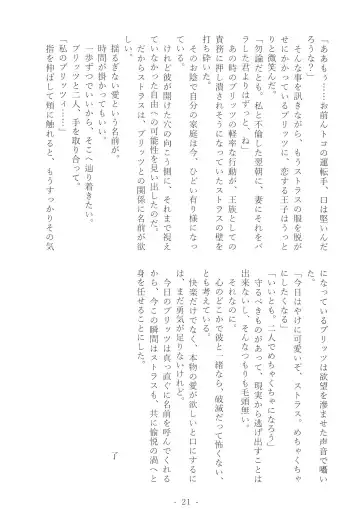 「ああもう……お前んトコの運転手、口は堅いんだ
ろうな？」
そんな事を訊きながら、もうストラスの服を脱が
せにかかっているブリッツに、恋する王子はうっと
りと微笑んだ。
「勿論だとも。私と不倫した翌朝に、妻にそれをバ
ラした君よりはずっと、ね」
あの時のブリッツの軽率な行動が、王族としての
責務に押し潰されそうになっていたストラスの壁を
打ち砕いた。
そのお陰で自分の家庭は今、ひどい有り様になっ
ている。
けれど彼が開けた穴の向こう側に、それまで視え
ていなかった自由への可能性を見い出したのだ。
だからストラスは、ブリッツとの関係に名前が欲
しい。
揺るぎない愛という名前が。
時間が掛かってもいい。
一歩ずつでいいから、そこへ辿り着きたい。
ブリッツと二人、手を取り合って。
「私のブリッツィ……」
指を伸ばして頬に触れると、もうすっかりその気
になっているブリッツは欲望を滲ませた声音で囁い
た。
「今日はやけに可愛いぞ、ストラス。めちゃくちゃ
にしたくなる」
「いいとも。二人でめちゃくちゃになろう」
守るべきものがあって、現実から逃げ出すことは
出来ないし、そんなつもりも毛頭無い。
それなのに。
心のどこかで彼と一緒なら、破滅だって怖くない
とも考えている。
快楽だけでなく、本物の愛が欲しいと口にするに
は、まだ勇気が足りないけれど。
今日のブリッツは真っ直ぐに名前を呼んでくれる
から、今この瞬間はストラスも、共に愉悦の渦へと
身を任せることにした。
了
- 21 -